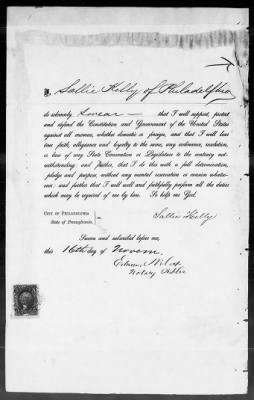 I, Sallie Kelly of Philadelphia
do solemnly Swear — that I will support, protect
and defend the Constitution and Government of the United States
against all enemies, whether domestic or foreign, and that I will bear
true faith, allegiance and loyalty to the same, any ordinance, resolution,
or law of any State Convention or Legislature to the contrary notwithstanding;
and further, that I do this with a full determination,
pledge and purpose, without any mental reservation or evasion whatsoever;
and further that I will well and faithfully perform all the duties
which may be required of me by law. So help me God.
City of Philadelphia
State of Pennsylvania. ss.
Sallie Kelly
Sworn and subscribed before me,
this 16th day of Novem.
Edmund Wilcox
Notary Public